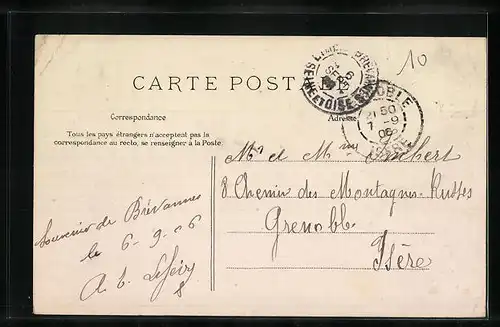 10
CARTE POST
LIMEIL-BREVANNES
SEINE ET OISE
GRENOBLE
21 50
7 -9
06
ISERE
Correspondance
Adresse
Tous les pays étrangers n'acceptent pas la
correspondance au recto, se renseigner à la Poste.
Mr et Mme Imbert
8 Chemin des Montagnes-Russes
Grenoble
Isère
Souvenir de Brévannes
le 6-9-06
A. L.